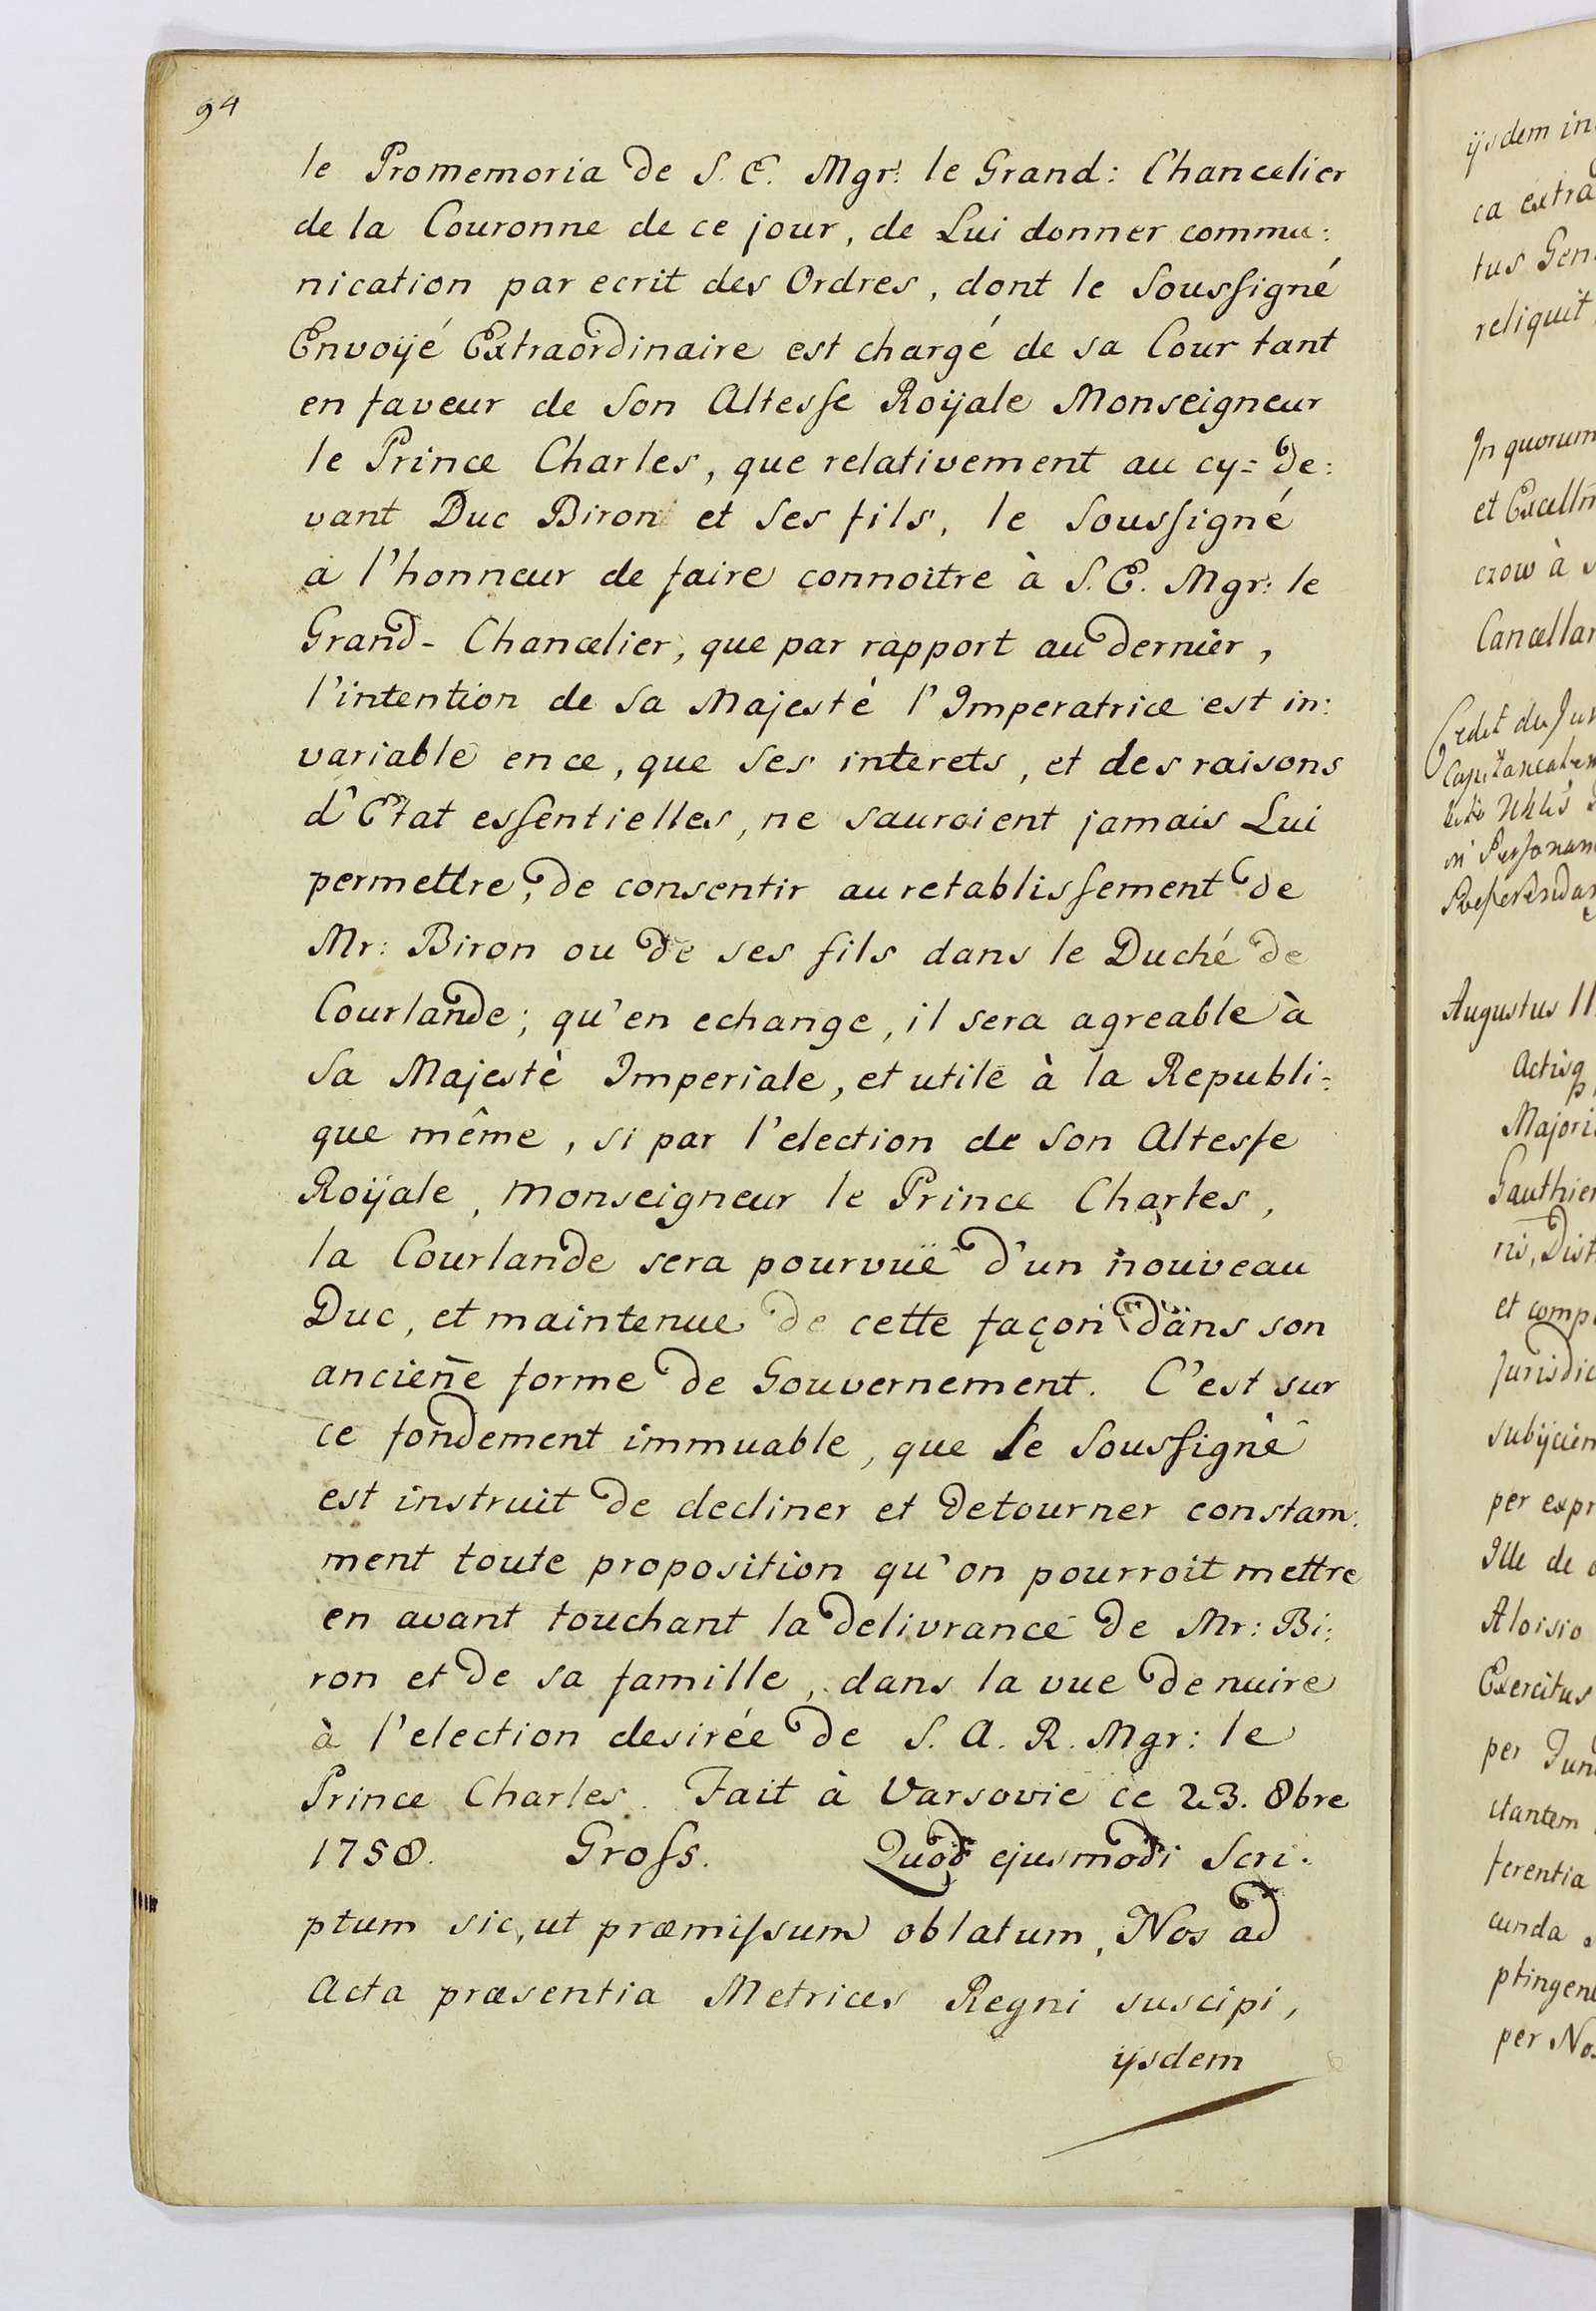 94
le Promemoria de S. E. Mgr: le Grand: Chancelier
de la Couronne de ce jour, de Lui donner commu:
nication par ecrit des Ordres, dont le Soussigné
Envoÿé Extraordinaire est chargé de sa Cour tant
en faveur de Son Altesse Roÿale Monseigneur
le Prince Charles, que relativement au cy=de:
vant Duc Biron et Ses fils, le Soussigné
a l'honneur de faire connoitre à S. E. Mgr: le
Grand-Chancelier, que par rapport au dernier,
l'intention de Sa Majesté l'Imperatrice est in:
variable en ce, que Ses interets, et des raisons
d'Etat essentielles, ne sauroient jamais Lui
permettre, de consentir au retablissement de
Mr: Biron ou de ses fils dans le Duché de
Courlande; qu'en echange, il sera agreable à
Sa Majestè Imperiale, et utile à la Republi=
que même, si par l'election de Son Altesse
Roÿale, Monseigneur le Prince Charles,
la Courlande sera pourvuë d'un nouveau
Duc, et maintenue de cette façon dans son
ancien̄e forme de Gouvernement. C'est sur
ce fondement immuable, que le Soussigné
est instruit de decliner et detourner constam:
ment toute proposition qu'on pourroit mettre
en avant touchant la delivrance de Mr: Bi:
ron et de sa famille, dans la vue de nuire
à l'election desirée de S. A. R. Mgr: le
Prince Charles. Fait à Varsovie ce 23. 8bre
1758. Gross. Quod ejusmodi Scri:
ptum sic, ut præmissum oblatum, Nos ad
Acta præsentia Metrices Regni suscipi,
ijsdem
ijsdem in
ca extra
tus Gen
reliquit
In quorum
et Excelln
czow à
Cancellar
Augustus II
Actisq
Majori
Gauthier
ris, Dist
et comp
Jurisdic
subijcien
per expr
Ille de
Aloisio
Exercitus
per Jun
ctantem
ferentia
cunda
ptingen
per No